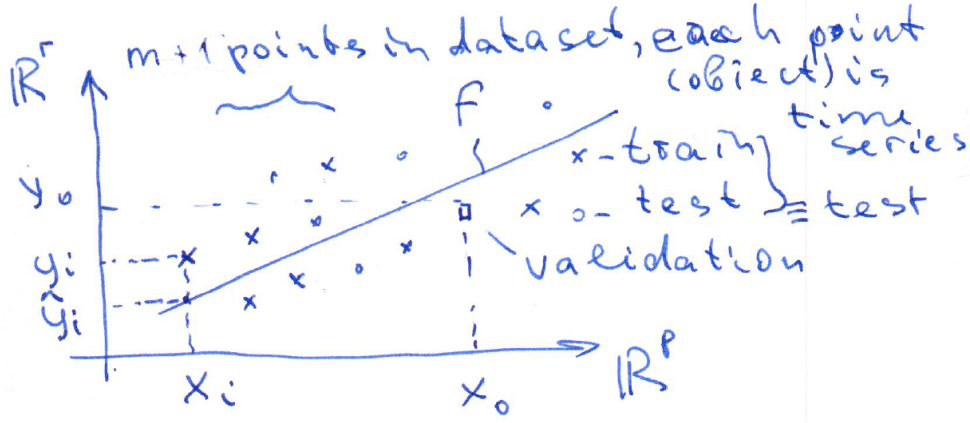 m+1 points in dataset, each point
(object) is
time
series
ℝʳ
f
x - train
y₀
x o - test ≡ test
yᵢ
validation
ỹᵢ
ℝᵖ
xᵢ
x₀